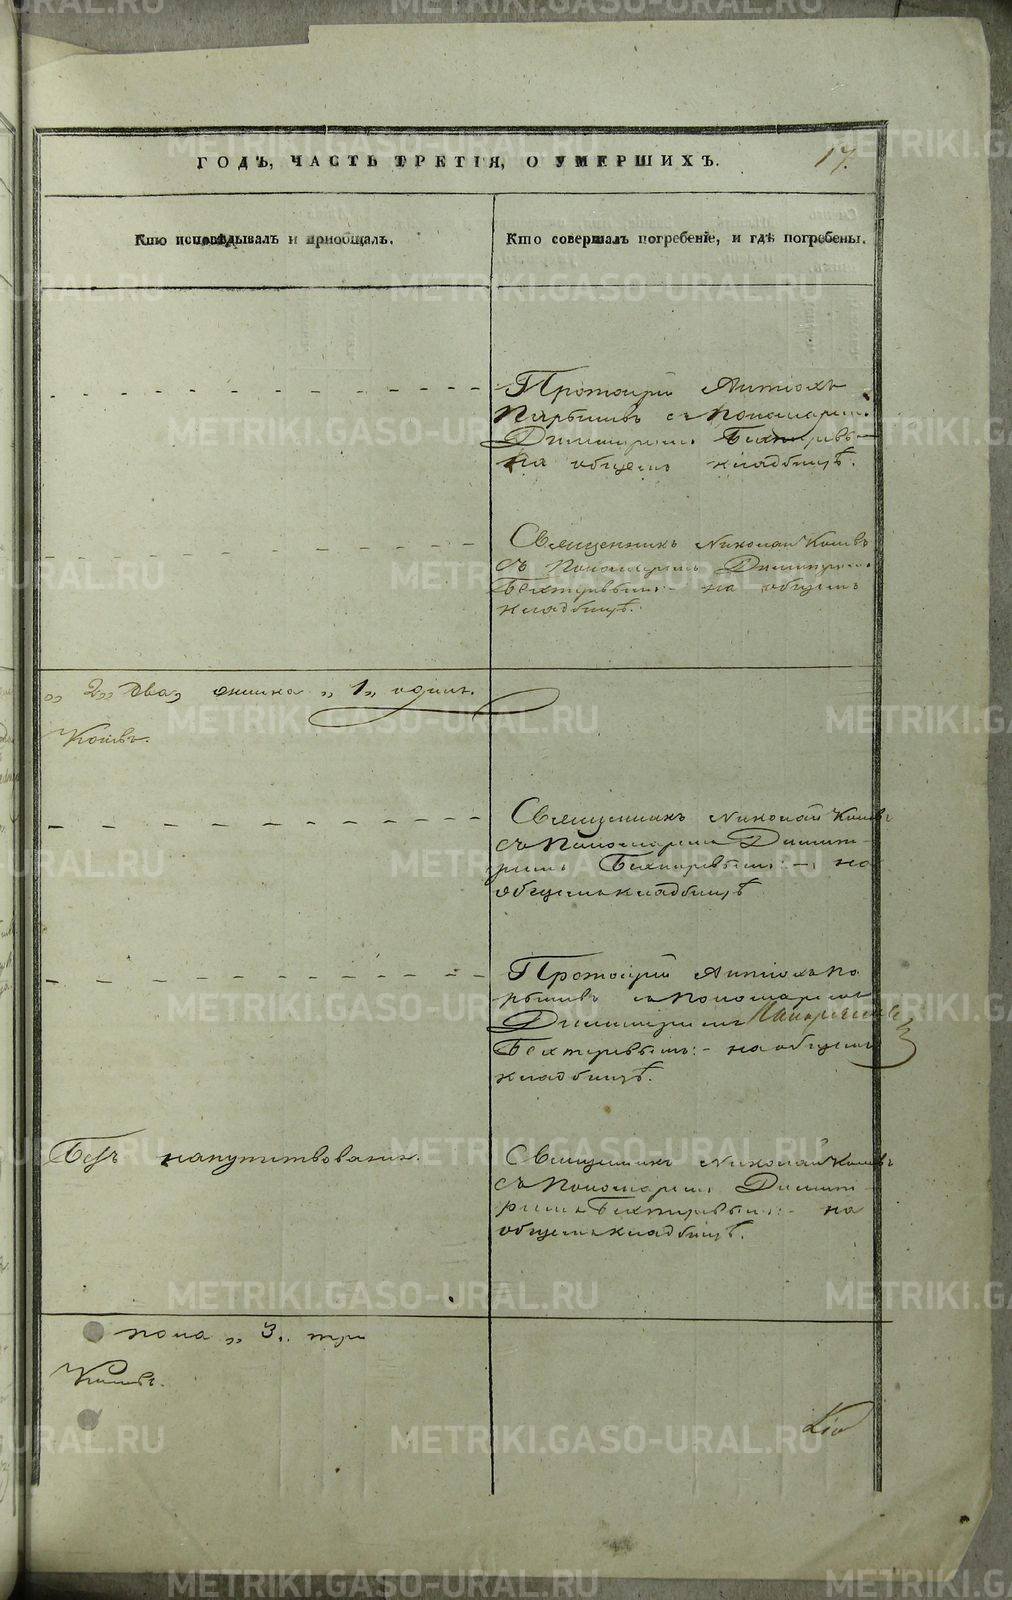 ГОДЪ, ЧАСТЬ ТРЕТІЯ, О УМЕРШИХЪ.
17.
Кто исповѣдывалъ и пріобщалъ.
Кто совершалъ погребеніе, и гдѣ погребены.
Протоіерй Антіохъ
съ Пономаремъ
Димитріемъ Бехтеревы-
на общемъ кладбищѣ.
Священникъ Николай
Съ Пономаремъ Димитріем.
Бехтеревымъ:- на общемъ
кладбищѣ.
„ 2„ два„ „ 1„ одинъ.
Священникъ Николай
съ Пономаремъ Димит-
ріемъ Бехтеревымъ:- на
общемъ кладбищѣ
Протоіерй Антіохъ
съ Пономаремъ
Димитріемъ
Бехтеревымъ:- на общемъ
кладбищѣ.
Безъ напутствованія.
Священникъ Николай
Съ Пономаремъ Димит-
ріемъ Бехтеревымъ:- на
общемъ кладбищѣ.
пола „ 3„ три
METRIKI.GASO-URAL.RU